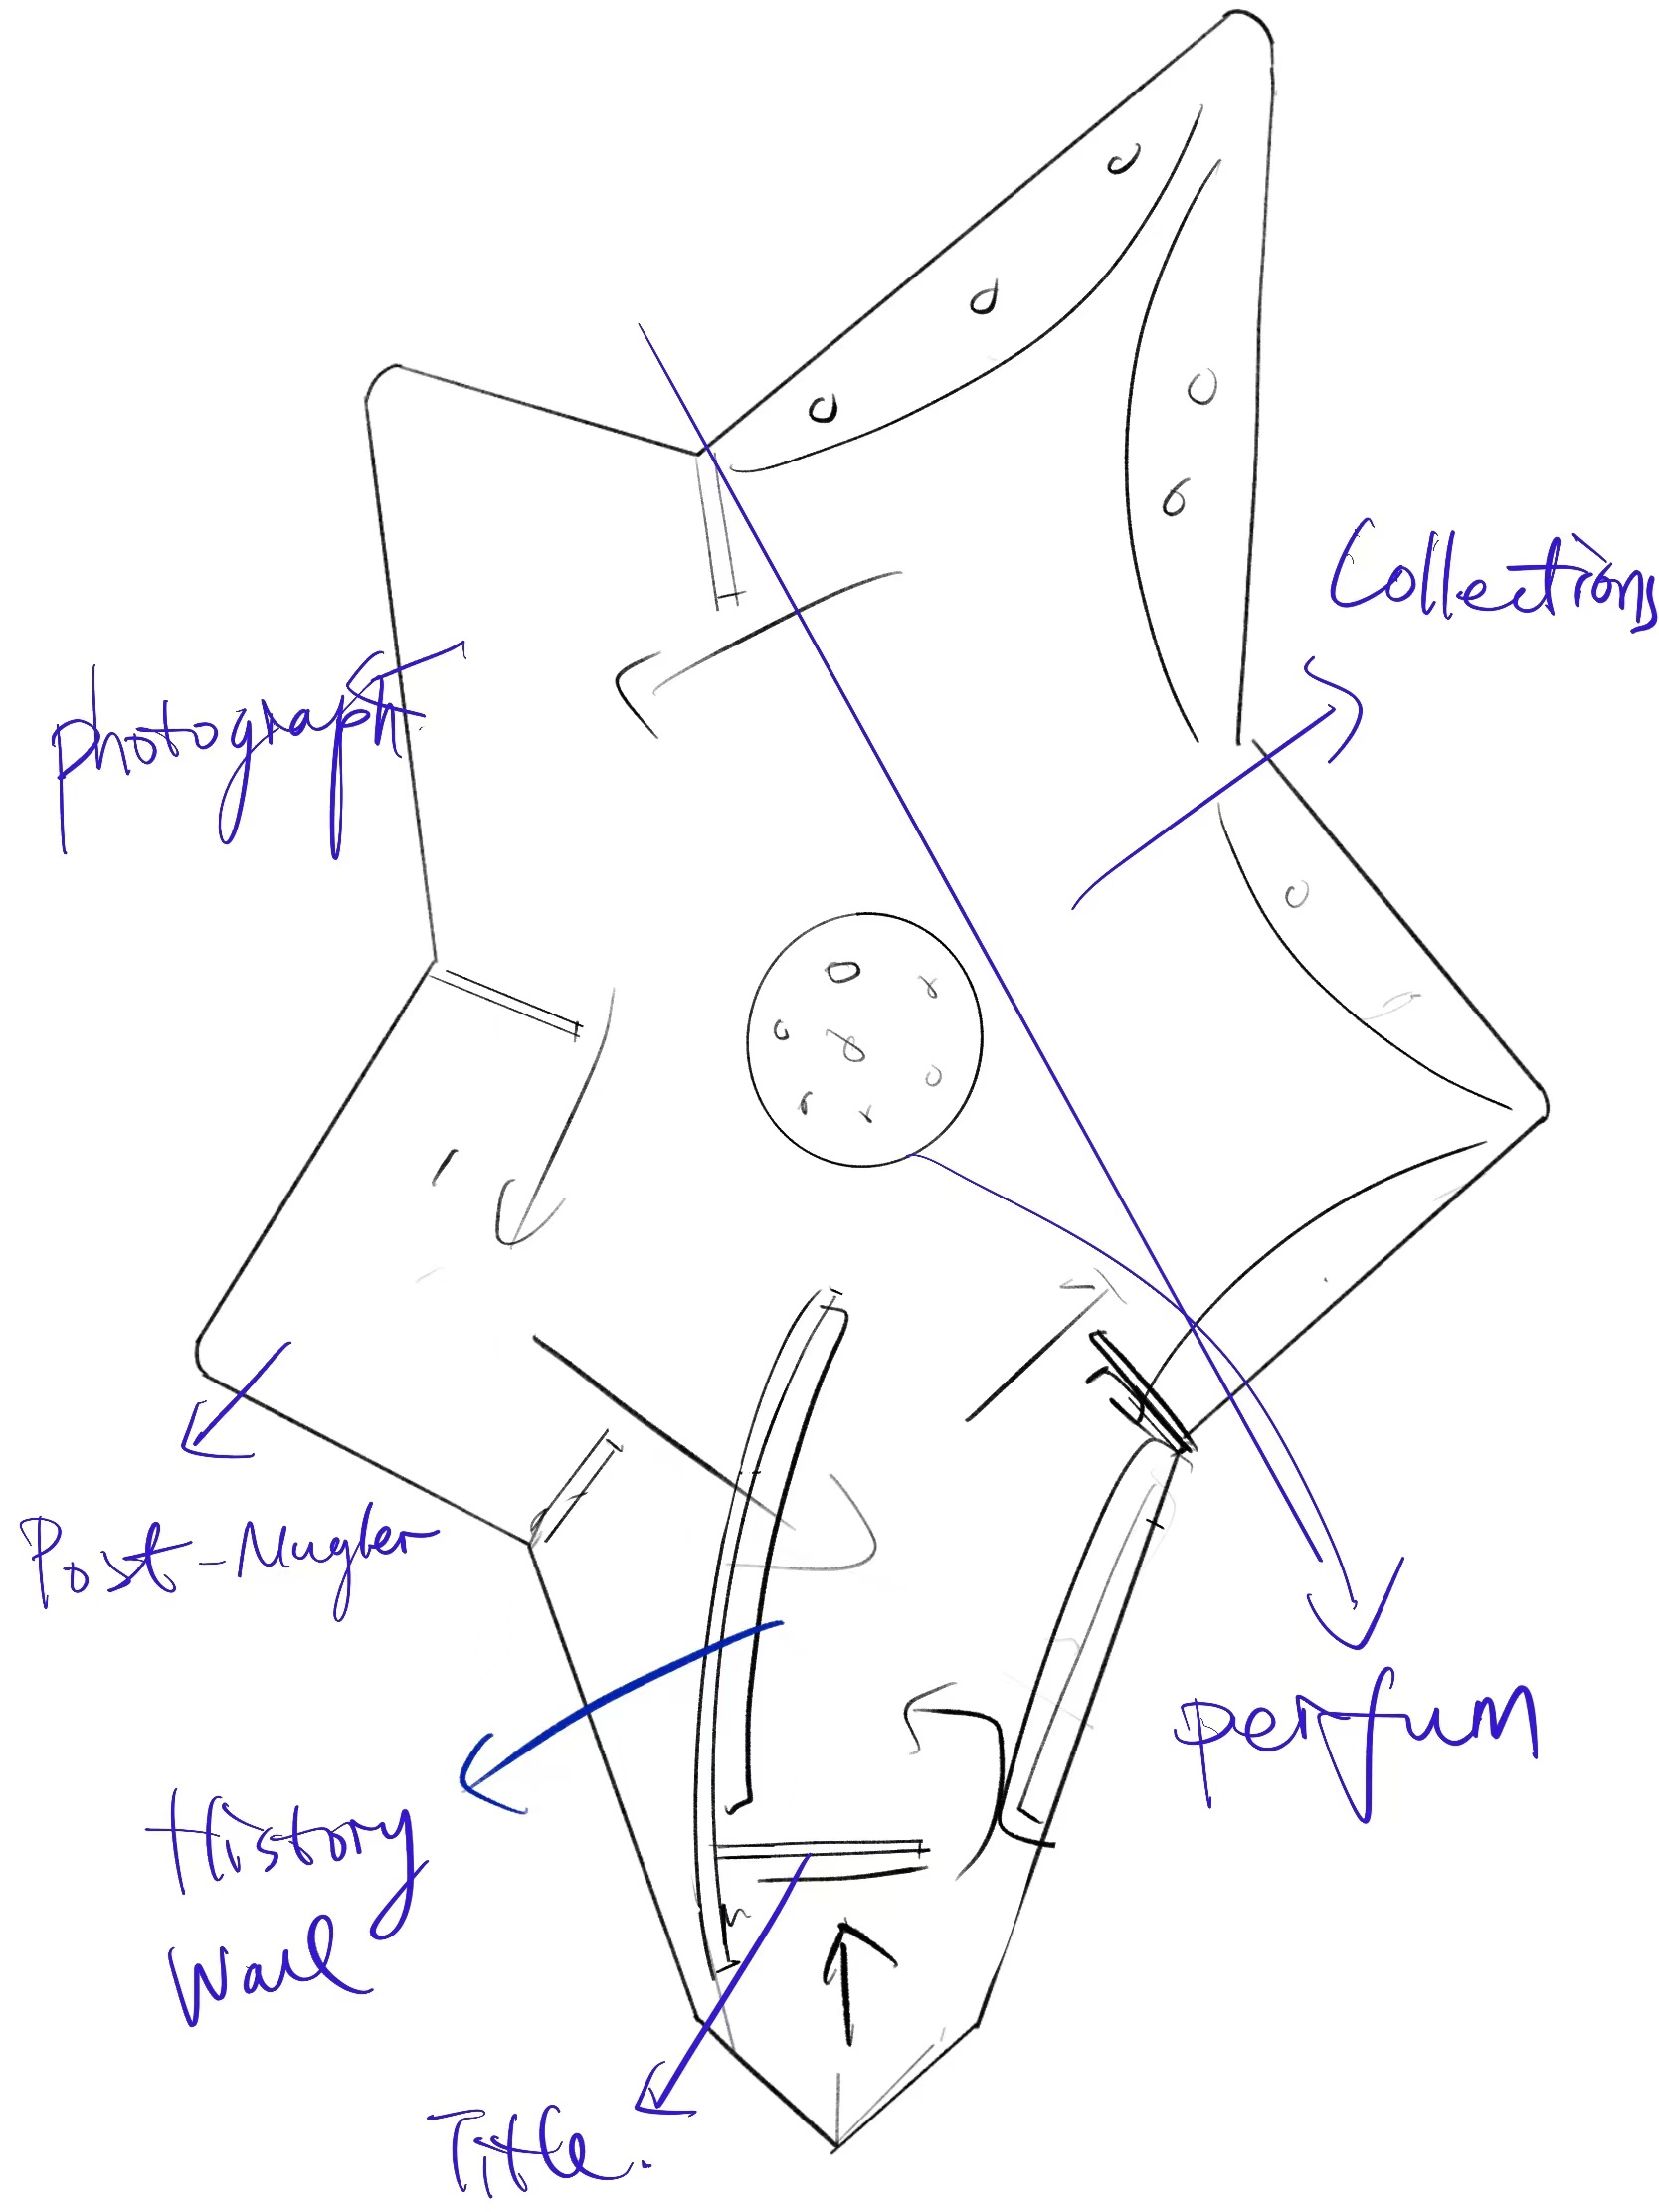 Collections
photograph
Post-Mugler
perfum
History
Wall
Title.